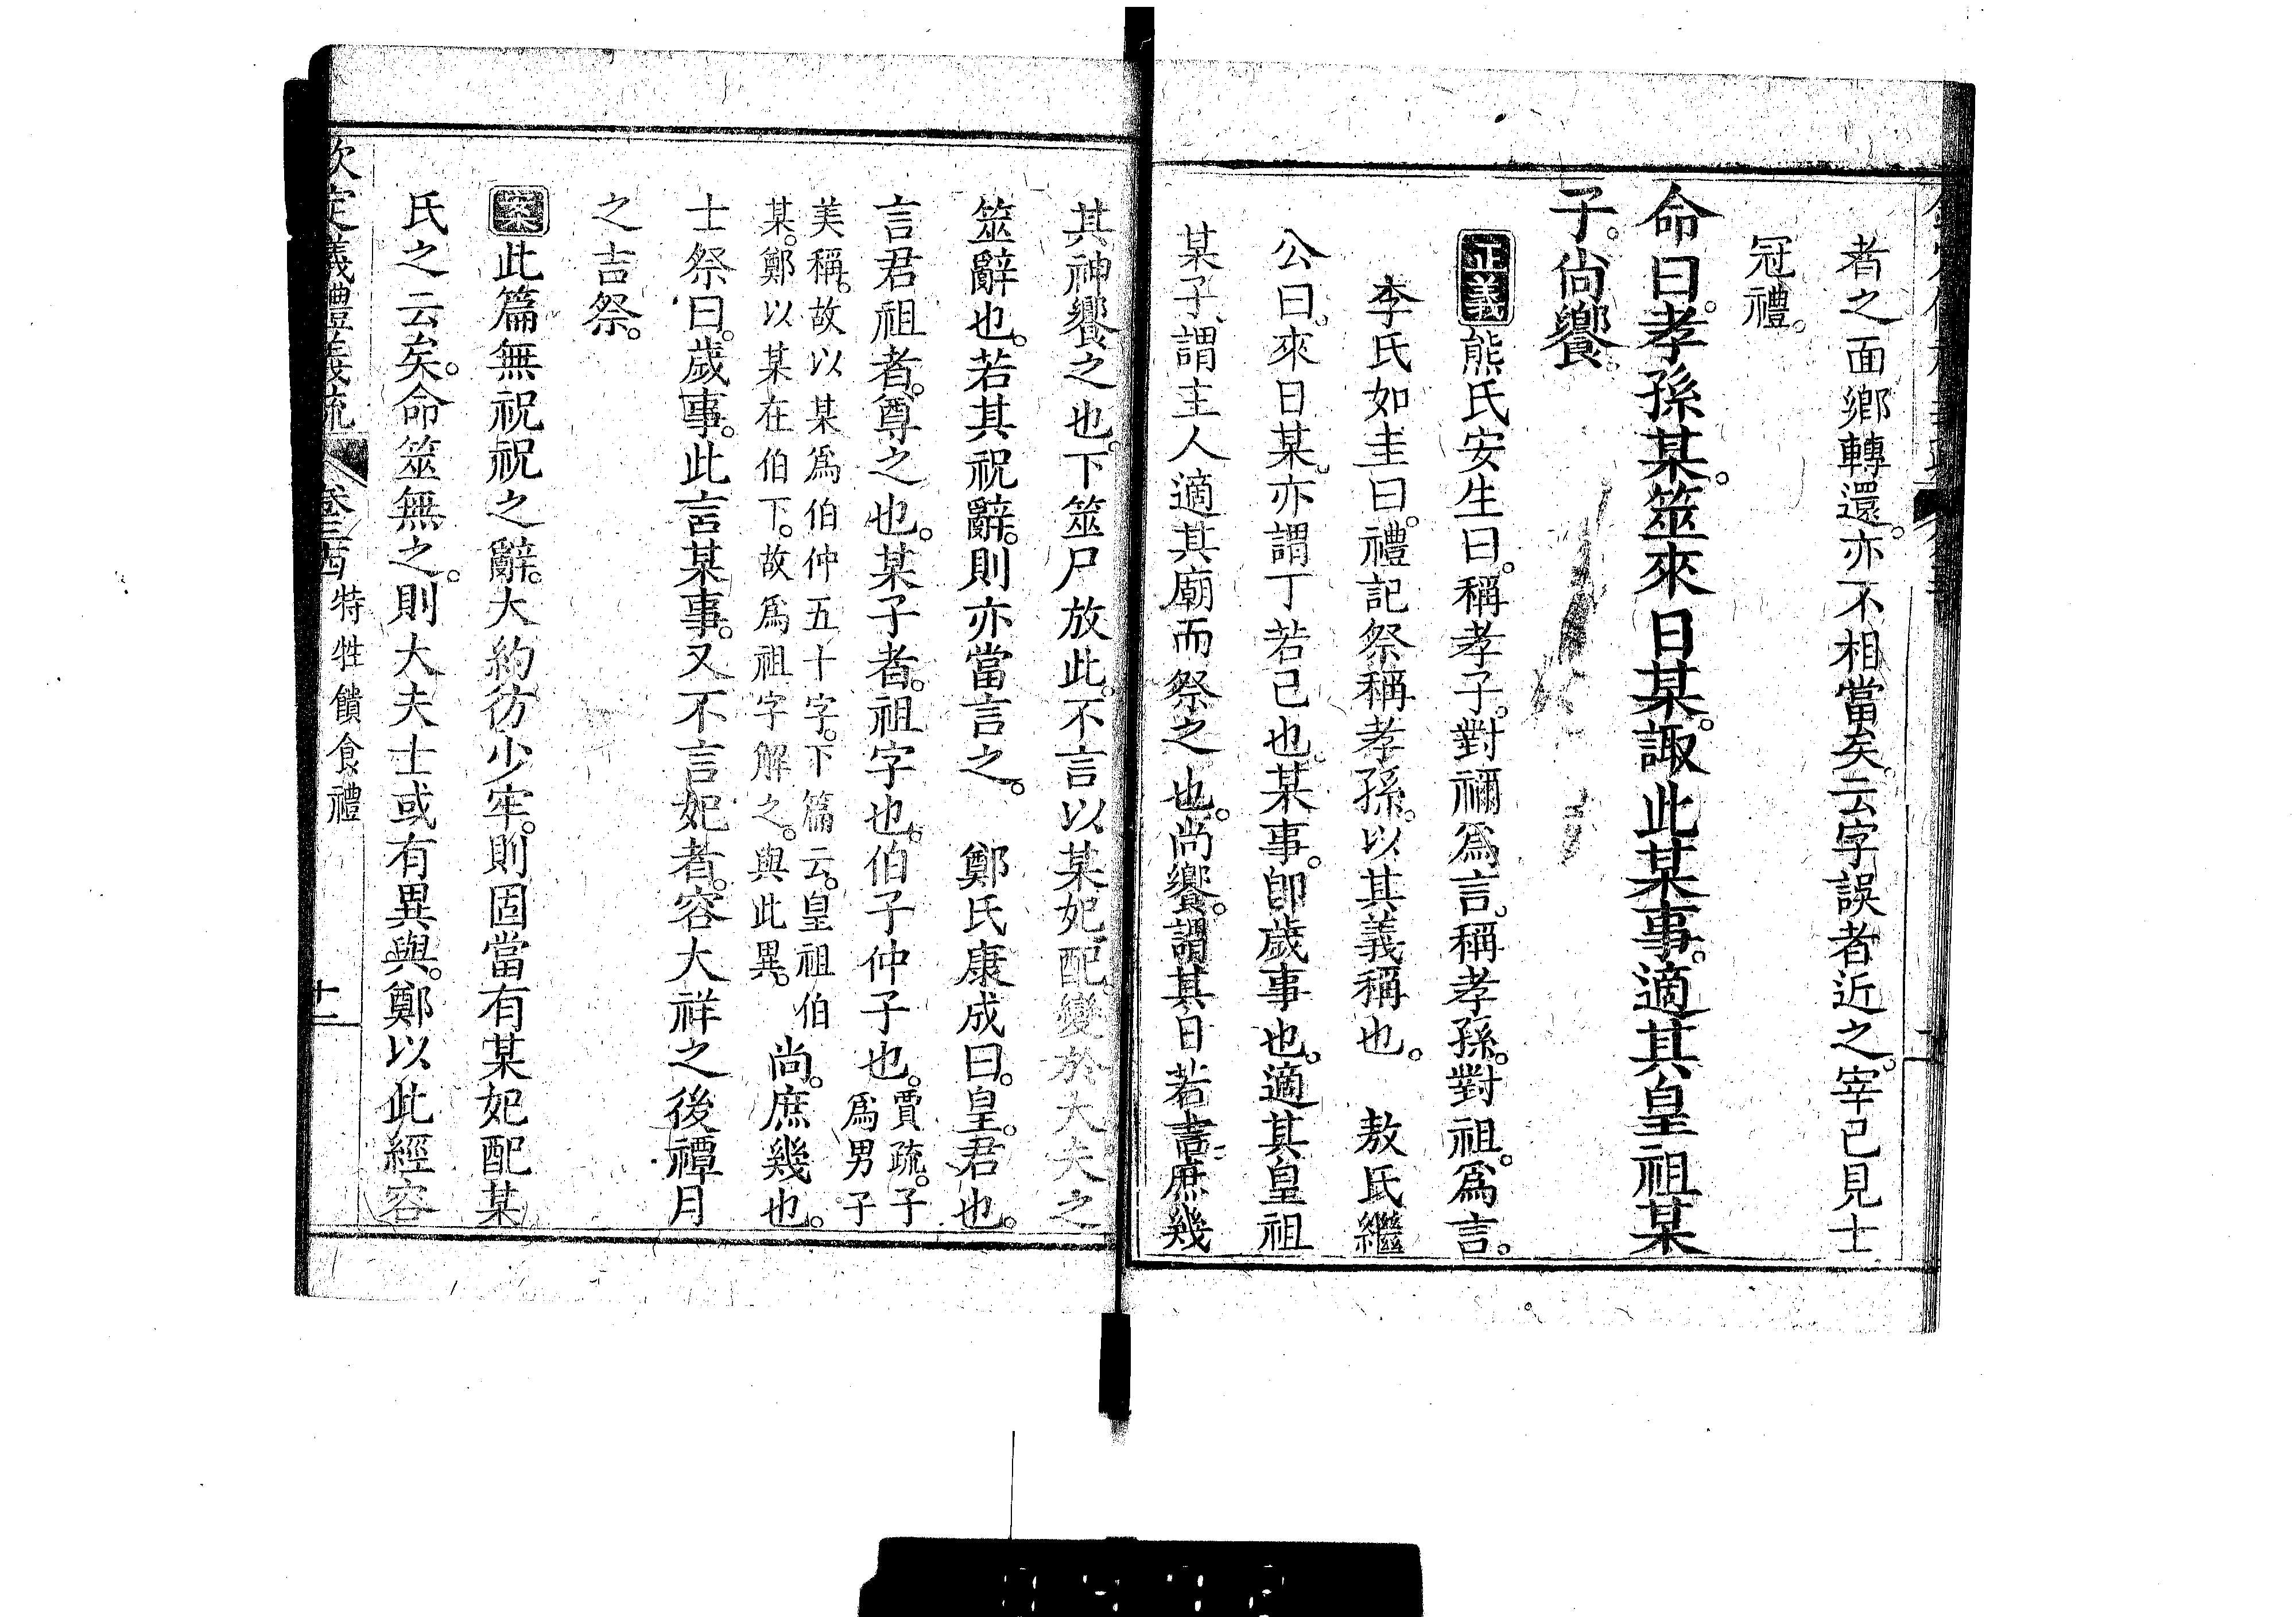 者之面鄉轉還。亦不相當矣。云字誤者近之。宰已見士
冠禮。
命曰。孝孫某。筮來日某。諏此某事。適其皇祖某
子。尚饗。
正義熊氏安生曰。稱孝子。對禰爲言。稱孝孫。對祖。爲言。
李氏如圭曰。禮記祭稱孝孫。以其義稱也。 敖氏繼
公曰。來日某。亦謂丁若己也。某事。卽歲事也。適其皇祖
某子、謂主人適其廟而祭之也。尚饗。謂其日若吉。庶幾
其神饗之也。下筮尸放此。不言以某妃配。變於大夫之
筮辭也。若其祝辭。則亦當言之。 鄭氏康成曰。皇。君也。
言君祖者。尊之也。某子者。祖字也。伯子仲子也。賈疏。子爲男子
美稱。故以某爲伯仲五十字。下篇云。皇祖伯
某。鄭以某在伯下。故爲祖字解之。與此異。 尚。庶幾也。
士祭曰。歲事。此言某事。又不言妃者。容大祥之後禫月
之吉祭。
案此篇無祝祝之辭。大約彷少牢。則固當有某妃配某
氏之云矣。命筮無之。則大夫士或有異與。鄭以此經容
欽定義禮義疏 卷三四 特牲饋食禮 十一